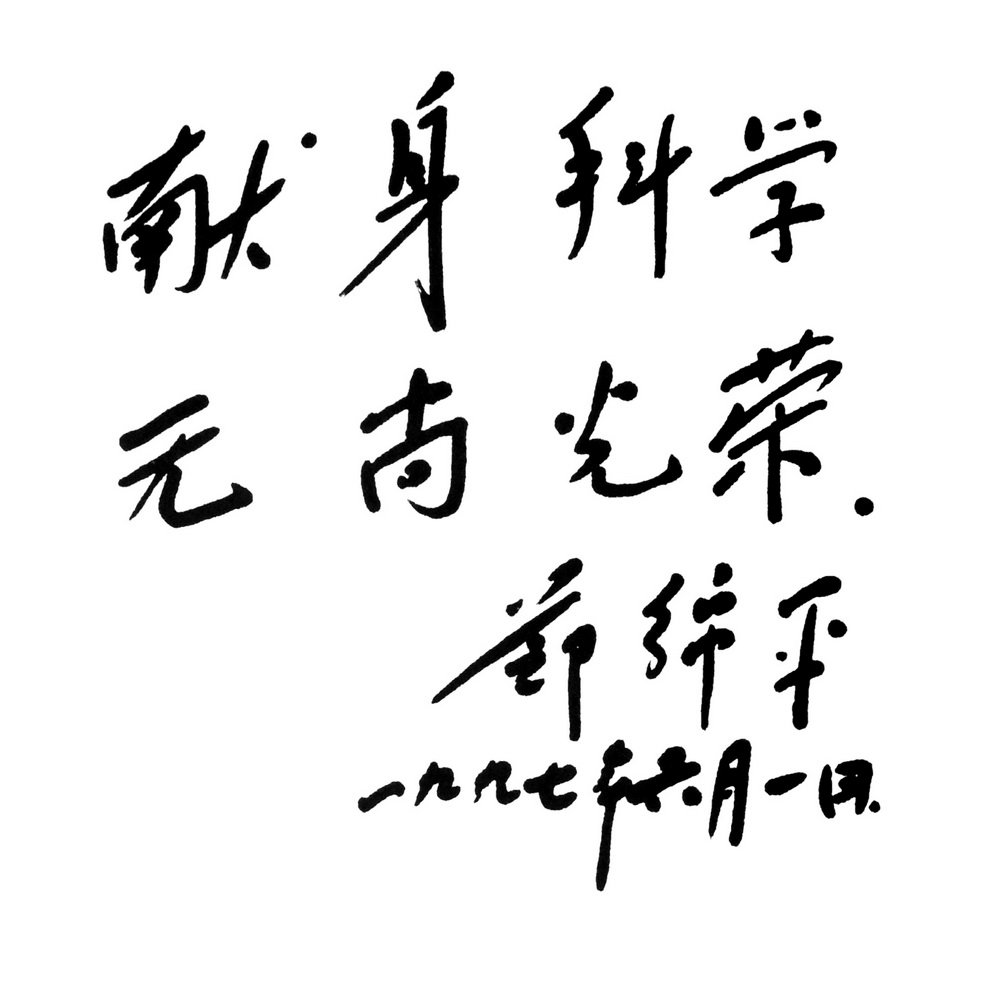 献身科学
无尚光荣.
郑绵平
一九九七年六月一日.